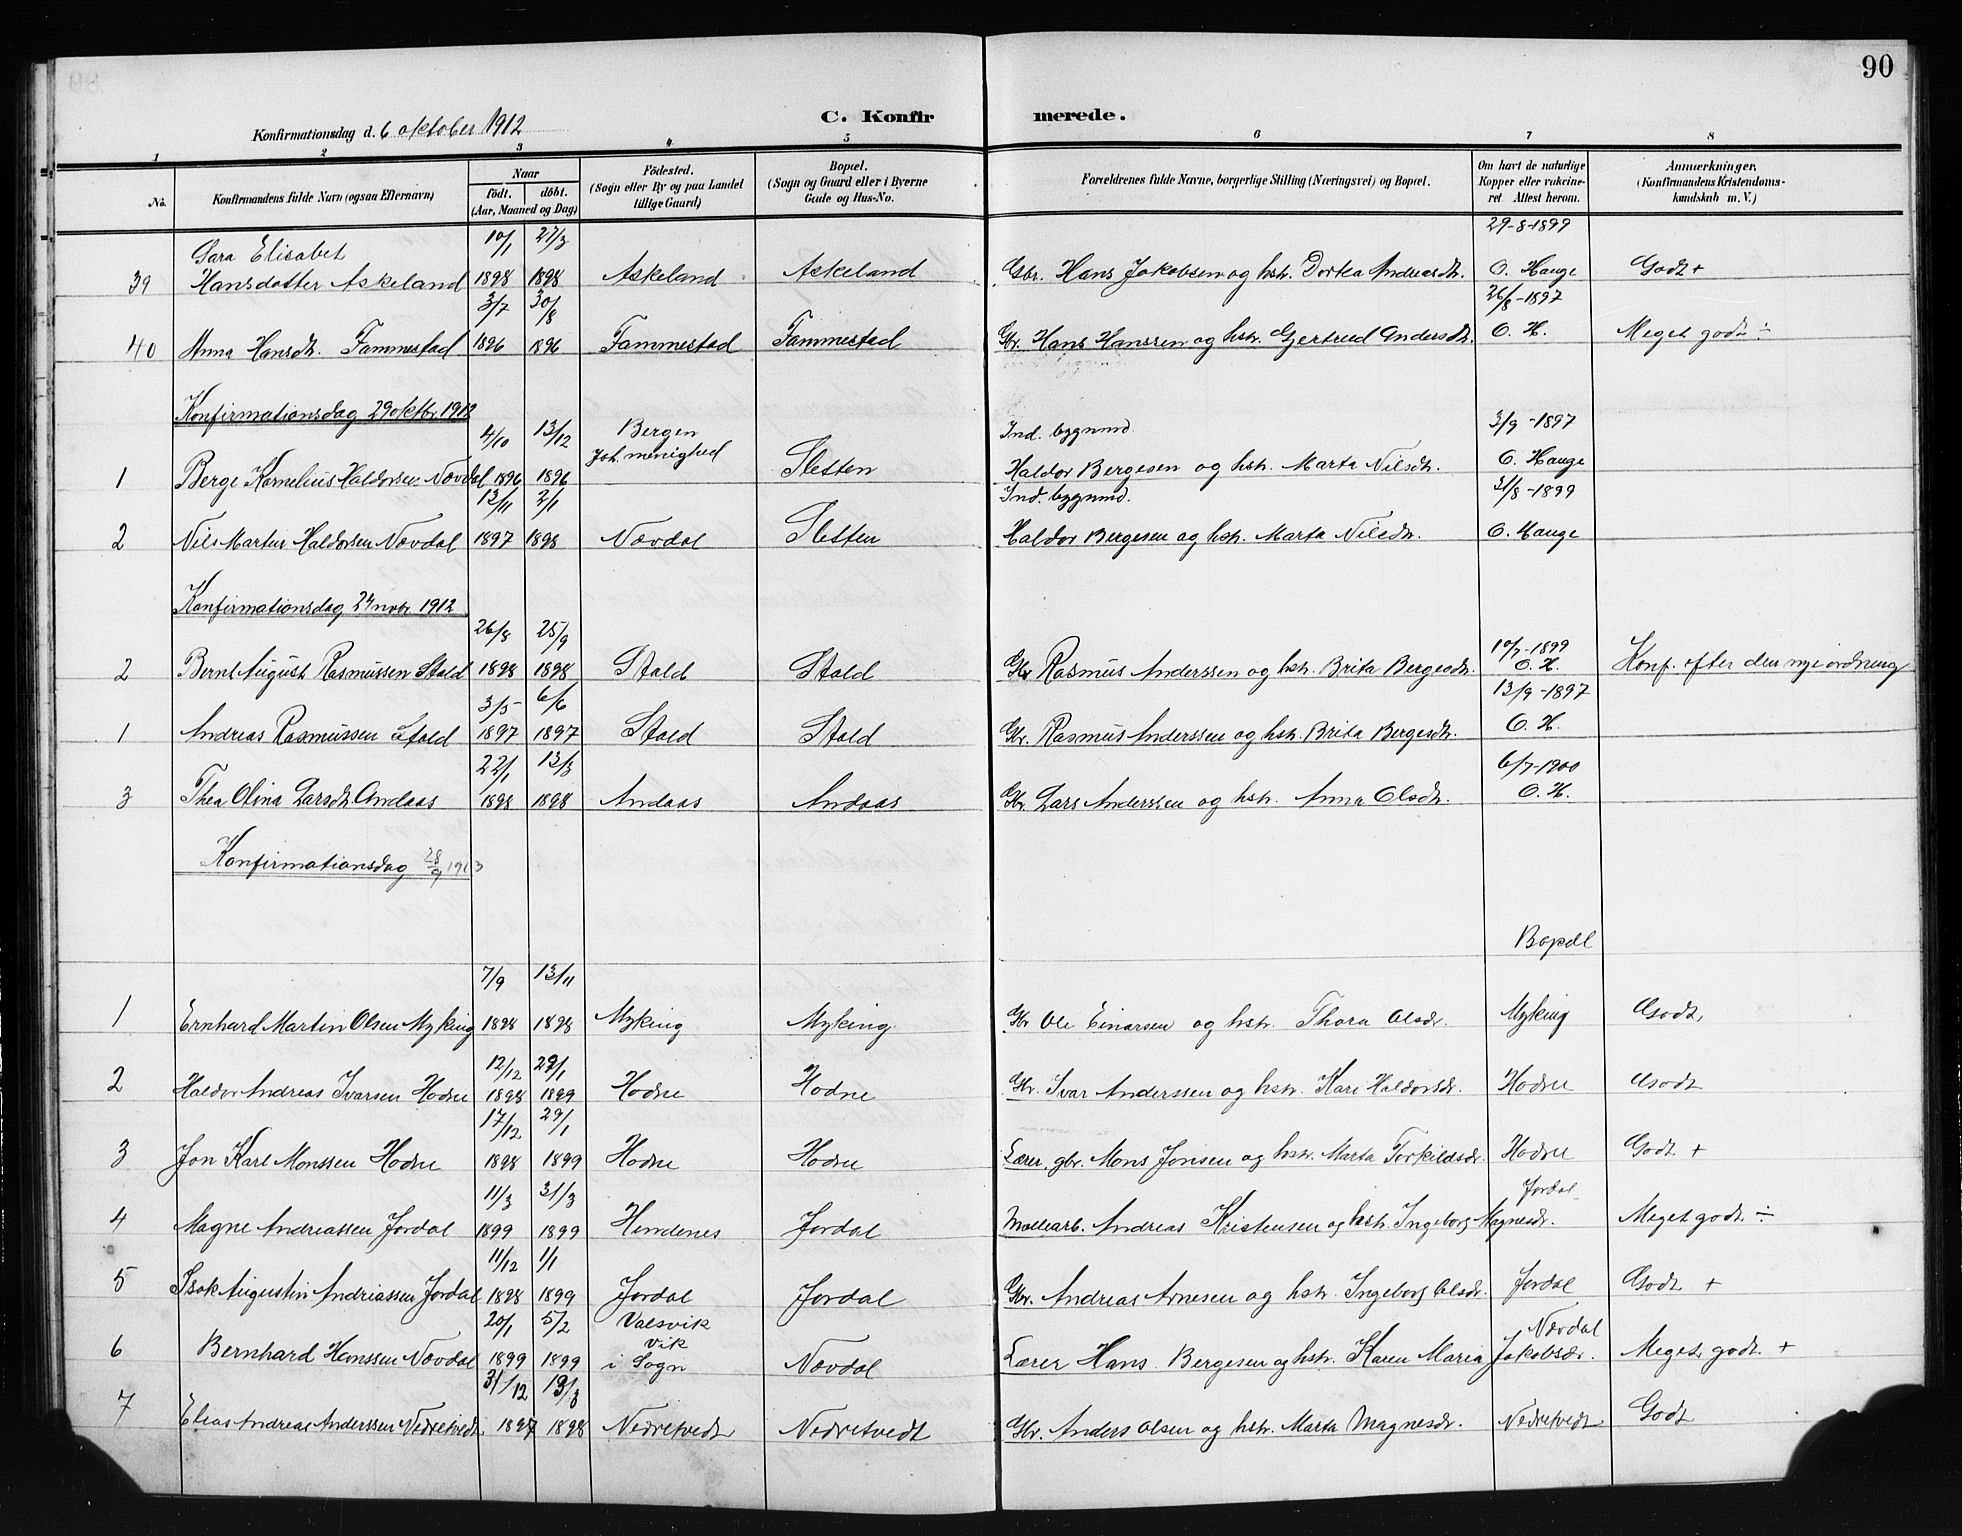 90
Konfirmationsdag d. 6 oktober 1912
C. Konfirmerede.
1 2 3 4 5 6 7 8
No. Konfirmandens fulde Navn (ogsaa Efternavn) Naar födt. döbt. (Aar, Maaned og Dag) Födested. (Sogn eller By og paa Landet tillige Gaard) Bopæl. (Sogn og Gaard eller i Byerne Gade og Hus-No. Forældrenes fulde Navne, borgerlige Stilling (Næringsvei) og Bopæl. Om havt de naturlige Kopper eller vakcineret Attest herom. Anmærkninger. (Konfirmandens Kristendomskundskab m. V.)
39 Sara Elisabet Hansdotter Askeland 10/1 1898 27/3 1898 Askeland Askeland Gbr. Hans Jakobsen og hstr. Dortea Andreasdtr. 29-8-1899 O. Hauge Godt +
40 Anna Hansdtr. Fammestad 3/7 1896 30/8 1896 Fammestad Fammestad Gbr. Hans Hanssen og hstr. Gjertrud Andersdtr. 26/8-1897 O. H. Meget godt ÷
Konfirmationsdag 29 oktbr 1912
1 Berge Kornelius Haldorsen Nævdal 4/10 1896 13/12 1896 Bergen Joh. menighed Sletten Ind. bygmnd. Haldor Bergesen og hstr. Marta Nilsdtr. 3/9-1897 O. Hauge
2 Nils Martin Haldorsen Nævdal 13/11 1897 2/1 1898 Nævdal Sletten Ind. bygmnd. Haldor Bergesen og hstr. Marta Nilsdtr. 31/8-1899 O. Hauge
Konfirmationsdag 24 novbr 1912
2 Bernt August Rasmussen Stald 26/8 1898 25/9 1898 Stald Stald Gbr Rasmus Anderssen og hstr. Brita Bergesdtr. 10/7-1899 O. H. Konf. efter den nye ordning
1 Andreas Rasmussen Stald 3/5 1897 6/6 1897 Stald Stald Gbr. Rasmus Anderssen og hstr. Brita Bergesdtr. 13/9-1897 O. H.
3 Thea Olina Larsdtr. Andaas 22/1 1898 13/3 1898 Andaas Andaas Gbr. Lars Anderssen og hstr. Anna Olsdtr. 6/7-1900 O. H.
Konfirmationsdag 28/9 1913
Bopæl
1 Ernhard Martin Olsen Myking 7/9 1898 13/11 1898 Myking Myking Gbr Ole Einarsen og hstr. Thora Olsdr. Myking Godt
2 Haldor Andreas Ivarsen Hodne 12/12 1898 29/1 1899 Hodne Hodne Gbr. Ivar Anderssen og hstr. Kari Haldorsdr. Hodne Godt
3 Jon Karl Monssen Hodne 17/12 1898 29/1 1899 Hodne Hodne Lærer, gbr. Mons Jonsen og hstr. Marta Torkildsdr. Hodne Godt +
4 Magne Andreassen Jordal 11/3 1899 31/3 1899 Hindenes Jordal Mollearb. Andreas Kristensen og hstr. Ingeborg Magnesdr. Jordal Meget godt ÷
5 Isak Augustin Andreassen Jordal 11/12 1898 1/1 1899 Jordal Jordal Gbr. Andreas Arnesen og hstr. Ingeborg Olsdr. Jordal Godt +
6 Bernhard Hanssen Nævdal 20/1 1899 5/2 1899 Valsvik vik i Sogn Nævdal Lærer Hans Bergesen og hstr. Karen Maria Jakobsdr. Nævdal Meget godt +
7 Elias Andreas Anderssen Nedretvedt 31/12 1897 13/3 1898 Nedretvedt Nedretvedt Gbr. Anders Olsen og hstr. Marta Magnesdr. Nedretvedt Godt